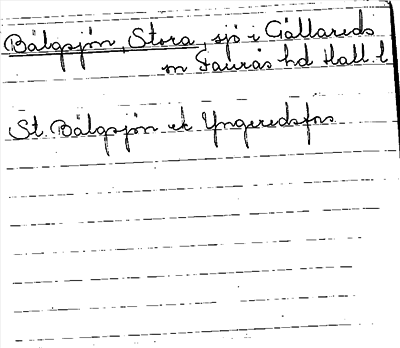 Bälgsjön, Stora, sjö i Gällareds
sn Faurås hd Hall. l
St. Bälgsjön ek Yngeredsfors